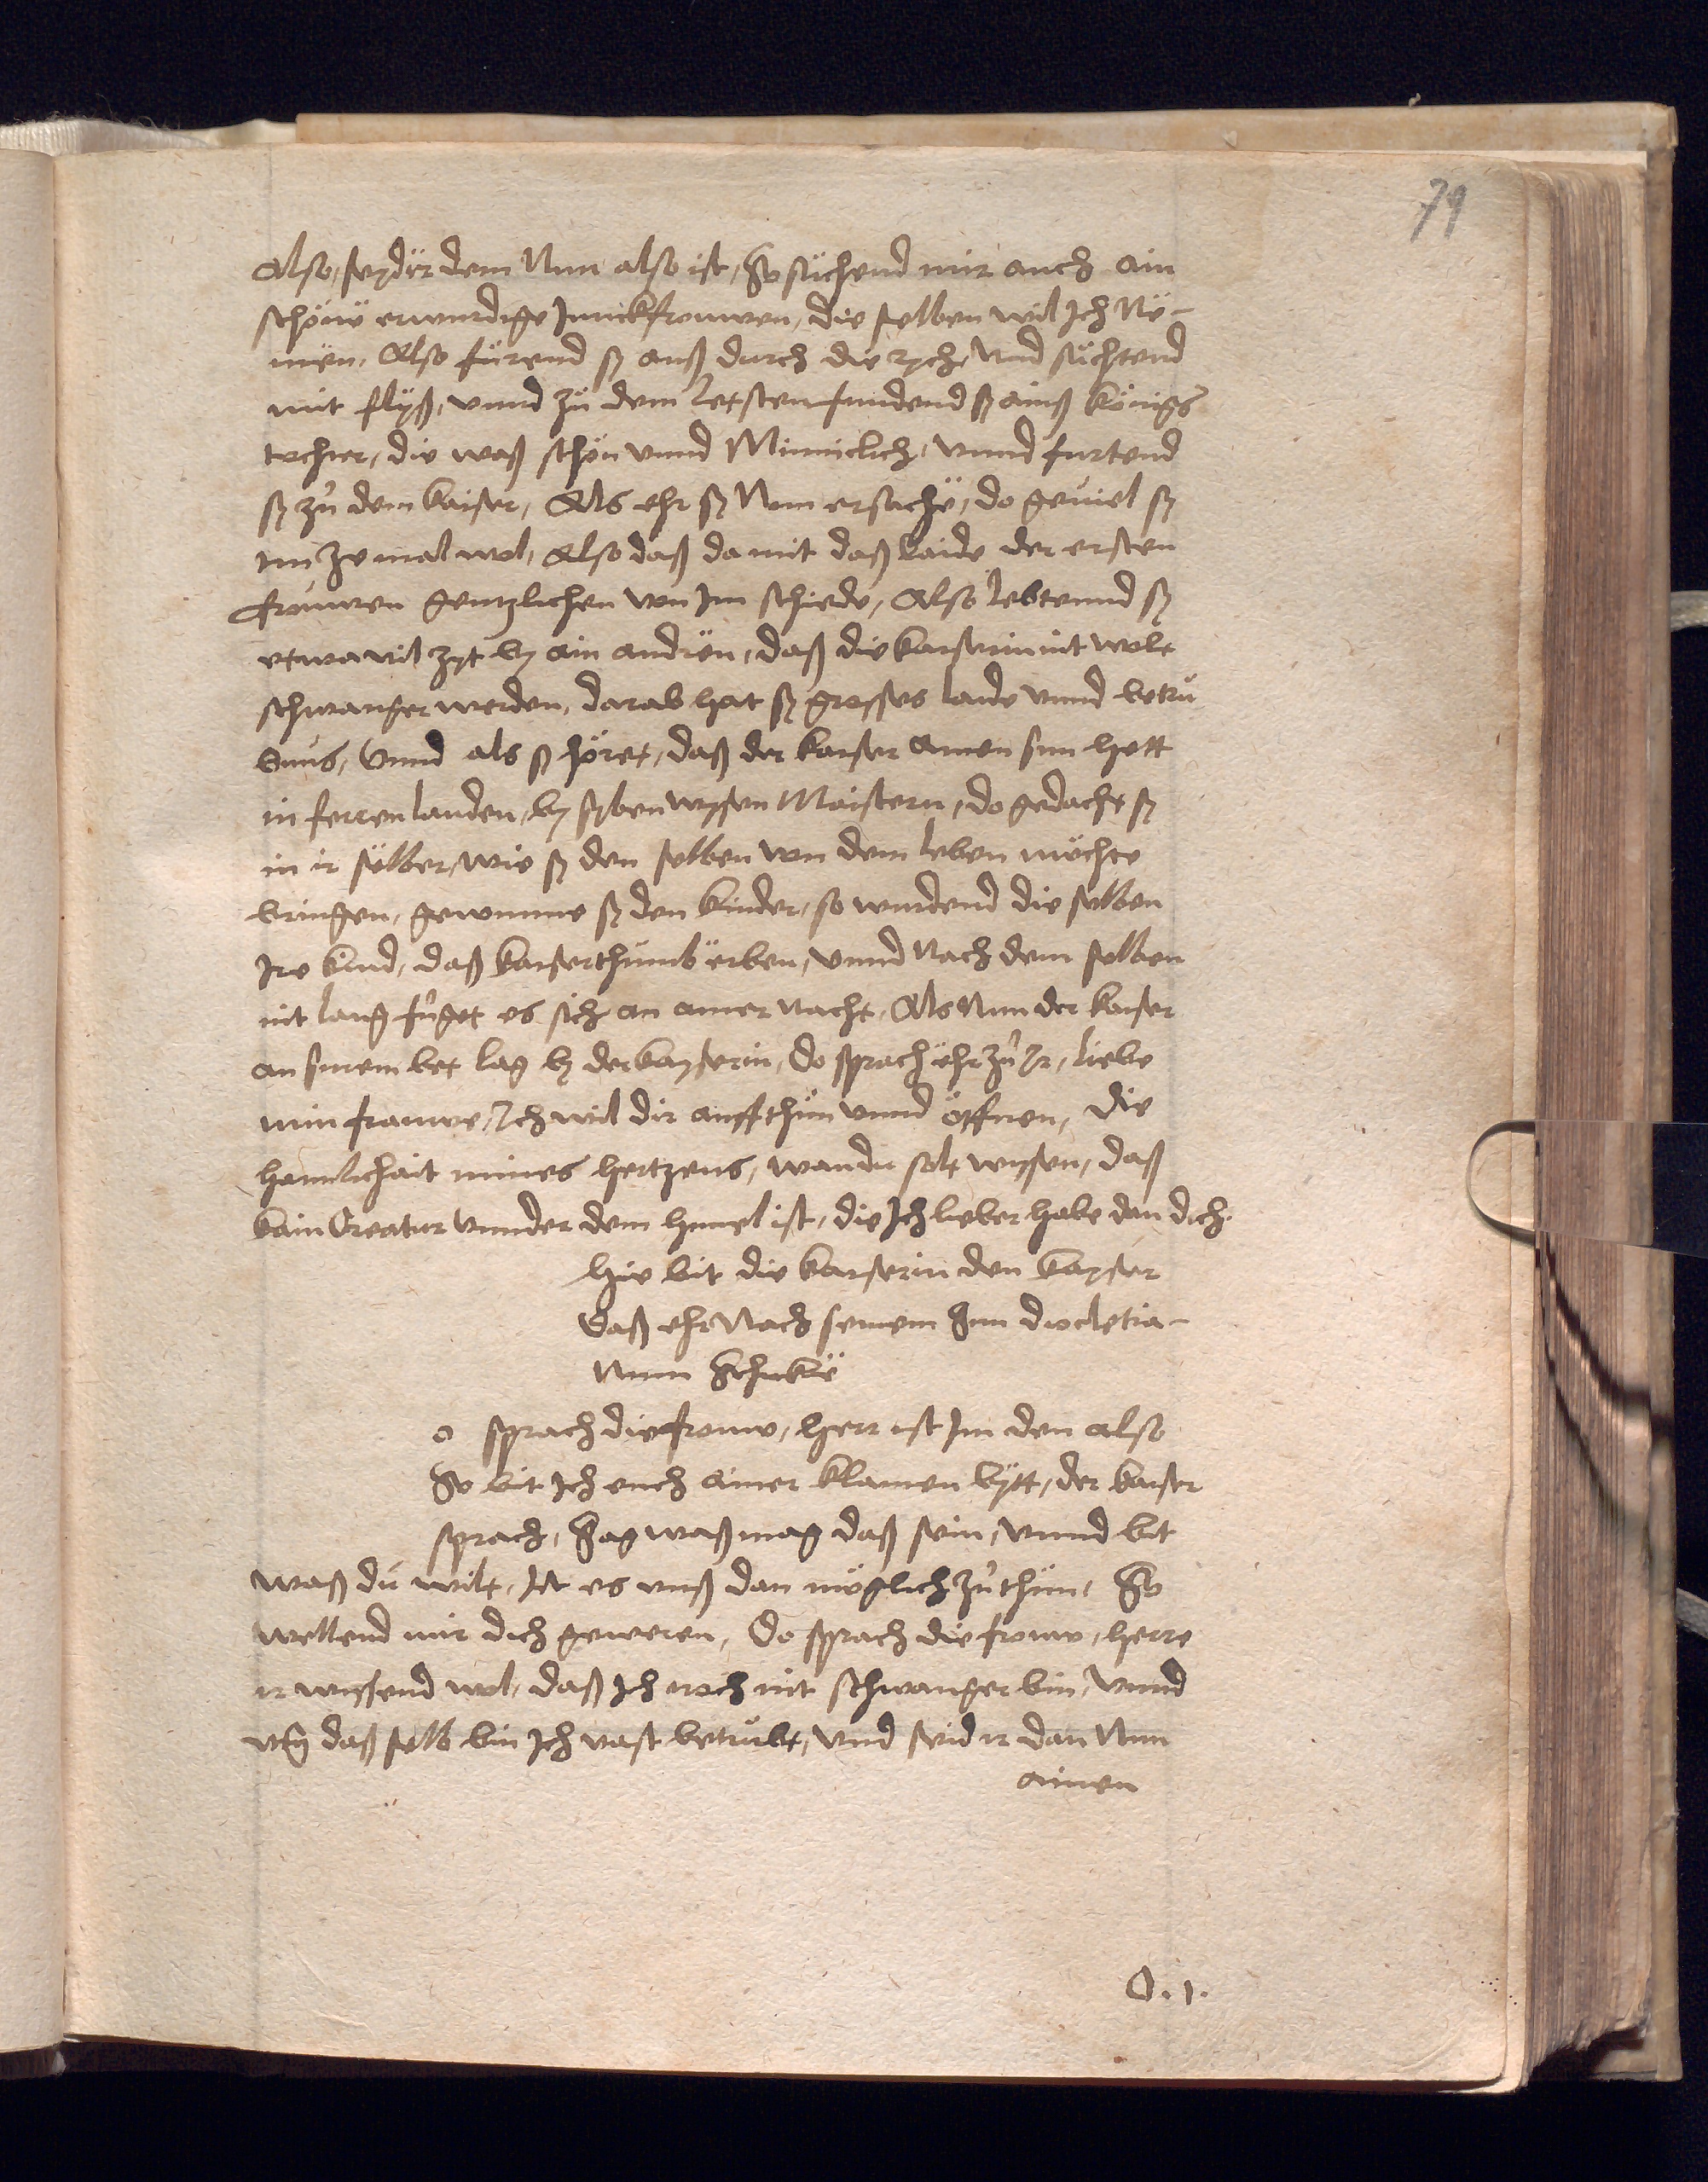 79
Also, seyder dem Nun also ist, So sůchend mir auch ain
schöne erwurdige Junckfrouwen, die selben wil Ich Ne-
men, Also fürend sy auß durch die rych, Vnd sůchtend
mit flyß, vnnd zů dem Letsten fundend sy ainß Königs
tochter, die waß schön vnnd Minniclich, vnnd furtend
sy zů dem kaiser, Als ehr sy Nun ersache, do geuiel sy
im ze mal wol, Also daß da mit daß laide der ersten
frouwen gentzlichen von Im schiede, Also lebtennd sy
etwa vil zyt by ain andren, daß die kaiserin nit wolt
schwanger werden, darab hat sy grosses laide vnnd betrů
bnus, Vnnd als sy höret, daß der kaiser ainen sun hett
in ferren landen, by syben wysen Maistern, do gedacht sy
in ir sälber, wie sy den selben von dem leben möchte
bringen, gewunne sy den kinder, so wurdend die selben
Ire kind, daß kaiserthumb erben, vnnd Nach dem selben
nit lang fůget es sich an ainer nacht, Als Nun der kaiser
an sinem bet lag by der kayserin, Do sprach ehr zů Ir, liebe
min frauwe, Ich wil dir auffthůn vnnd öffnen, die
haimlichait mines hertzens, wan du solt wyssen, daß
kain Creatur vnnder dem himel ist, die Ich lieber habe dan dich.
Hie bit die kaiserin den kayser
Daß ehr Nach seinem Sun diocletia-
Num Schicke
o sprach die frouw, herr ist Im den also
So bit Ich euch ainer klainen bytt, der kaiser
sprach, Sag waß mag daß sein, vnnd bit
waß du wilt, Ist es vnß dan möglich zů thůn, So
wellend mir dich geweren, Do sprach die frouw, herre
ir wyssend wol, daß Ich noch nit schwanger bin, vnnd
vm daß selb bin Ich vast betrůbt, vnd seid ir dan Nun
ainen
O. 1.